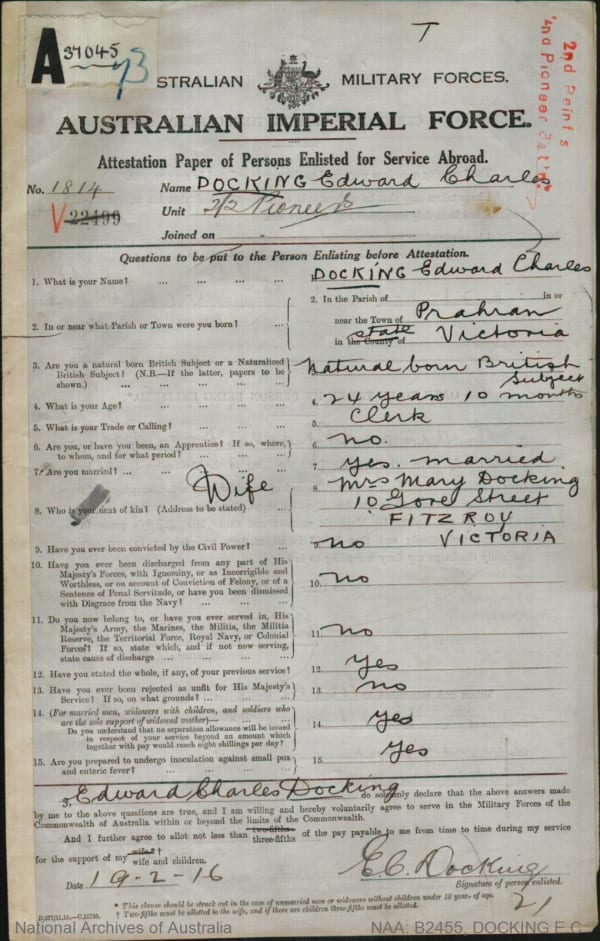 A
37045
T
2nd Reinf s
2nd Pioneer Battn.
STRALIAN MILITARY FORCES.
AUSTRALIAN IMPERIAL FORCE.
Attestation Paper of Persons Enlisted for Service Abroad.
No. 1814 Name DOCKING Edward Charles
V 22499 Unit 2/2 Pioneer
Joined on
Questions to be put to the Person Enlisting before Attestation.
1. What is your Name? ... ... ... DOCKING Edward Charles
2. In or near what Parish or Town were you born? ... 2. In the Parish of in or
near the Town of Prahran
in the County of state Victoria
3. Are you a natural born British Subject or a Naturalized British Subject? (N.B.—If the latter, papers to be shown.) ... ... ... ... ... Natural born British Subject
4. What is your Age? ... ... ... ... 4. 24 years 10 months
5. What is your Trade or Calling? ... ... 5. Clerk
6. Are you, or have you been, an Apprentice? If so, where, to whom, and for what period? ... ... ... 6. no.
7. Are you married? ... ... ... ... 7. yes. married
8. Who is your next of kin? (Address to be stated) ... Wife 8. Mrs Mary Docking
10 Gore Street
FITZROY
VICTORIA
9. Have you ever been convicted by the Civil Power? ... 9. no
10. Have you ever been discharged from any part of His Majesty's Forces, with Ignominy, or as Incorrigible and Worthless, or on account of Conviction of Felony, or of a Sentence of Penal Servitude, or have you been dismissed with Disgrace from the Navy? ... ... ... 10. no
11. Do you now belong to, or have you ever served in, His Majesty's Army, the Marines, the Militia, the Militia Reserve, the Territorial Force, Royal Navy, or Colonial Forces? If so, state which, and if not now serving, state cause of discharge ... ... ... ... 11. no
12. Have you stated the whole, if any, of your previous service? 12. yes
13. Have you ever been rejected as unfit for His Majesty's Service? If so, on what grounds? ... ... ... 13. no
14. (For married men, widowers with children, and soldiers who are the sole support of widowed mother)—
Do you understand that no separation allowance will be issued in respect of your service beyond an amount which together with pay would reach eight shillings per day? 14. yes
15. Are you prepared to undergo inoculation against small pox and enteric fever? ... ... ... ... 15. yes
I, Edward Charles Docking do solemnly declare that the above answers made
by me to the above questions are true, and I am willing and hereby voluntarily agree to serve in the Military Forces of the
Commonwealth of Australia within or beyond the limits of the Commonwealth.
And I further agree to allot not less than two-fifths three-fifths of the pay payable to me from time to time during my service
for the support of my wife † wife and children.
Date 19-2-16 E C Docking
Signature of person enlisted.
21
* This clause should be struck out in the case of unmarried men or widowers without children under 18 years of age.
† Two-fifths must be allotted to the wife, and if there are children three-fifths must be allotted.
National Archives of Australia NAA: B2455, DOCKING E C